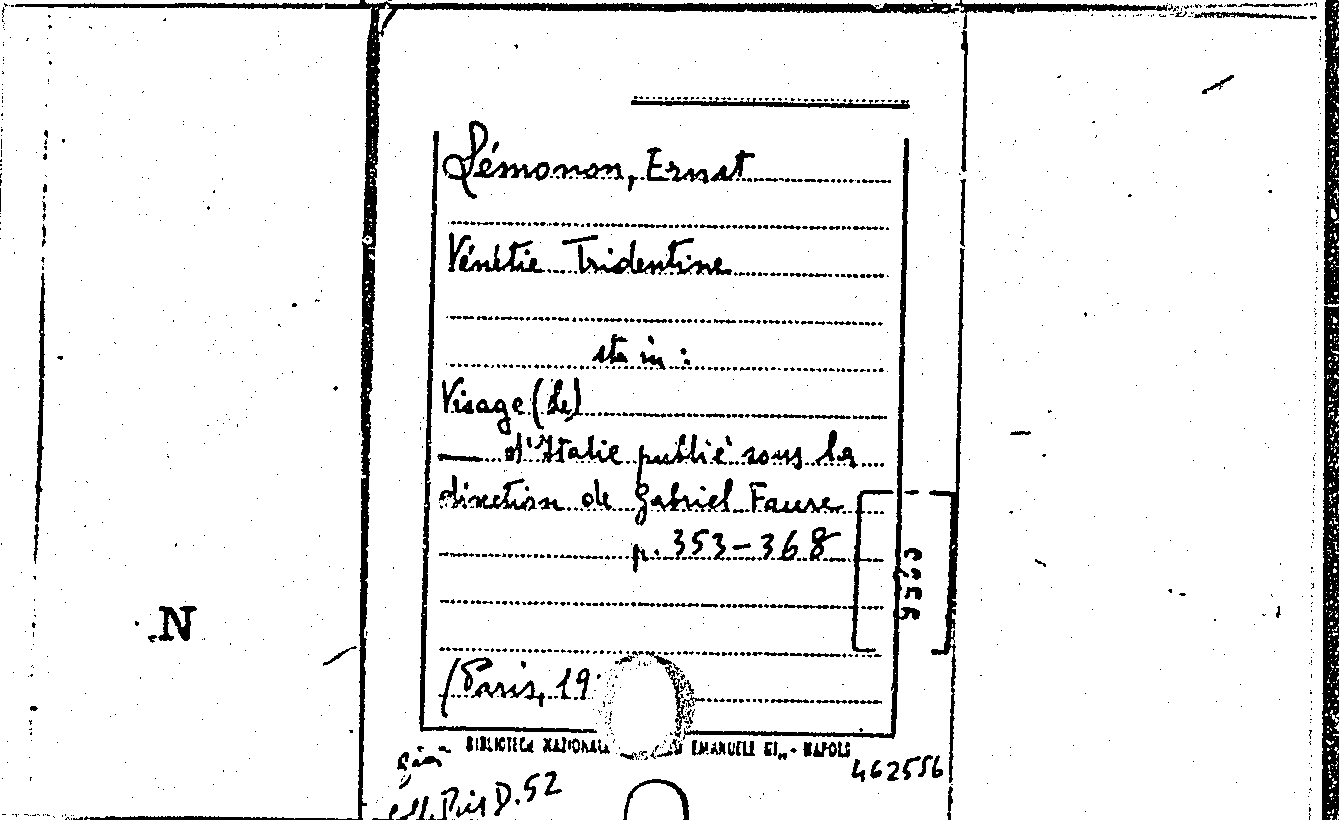 Lémonon, Ernest
Vénétie Tridentine
sta in :
Visage (Le)
— d'Italie publié sous la
direction de Gabriel Faure
p. 353-368
Paris, 19
N
BIBLIOTECA NAZIONALE EMANUELE III - NAPOLI
già
Coll. Pris D. 52
462556